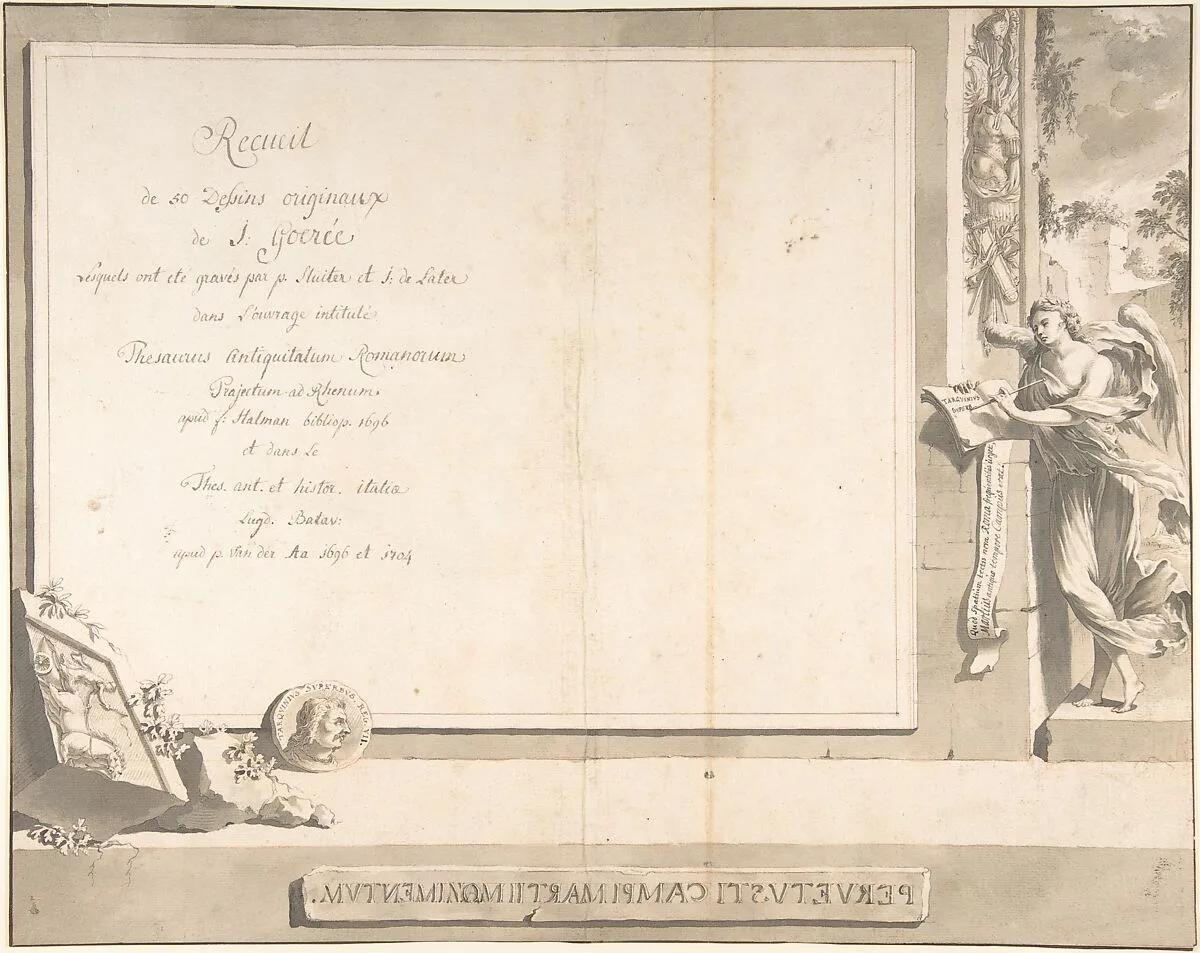 Recueil
de 50 Dessins originaux
de J: Goerée
Lesquels ont eté gravés par p. Sluiter et J: de Later
dans L'ouvrage intitulé
Thesaurus Antiquitatum Romanorum
Trajectum ad Rhenum
apud f: Halman bibliop. 1696
et dans Le
Thes. ant. et histor. italiæ
Lugd. Batav:
apud p. Van der Aa 1696 et 1704
TARQVINIVS
SVPERB
Quod Spatium tectis nunc Roma frequentibus urget,
Martius antiquo tempore Campus erat.
TARQVINIVS SVPERBVS REG. VII.
PERVETVSTI CAMPI MARTII MONIMENTVM.